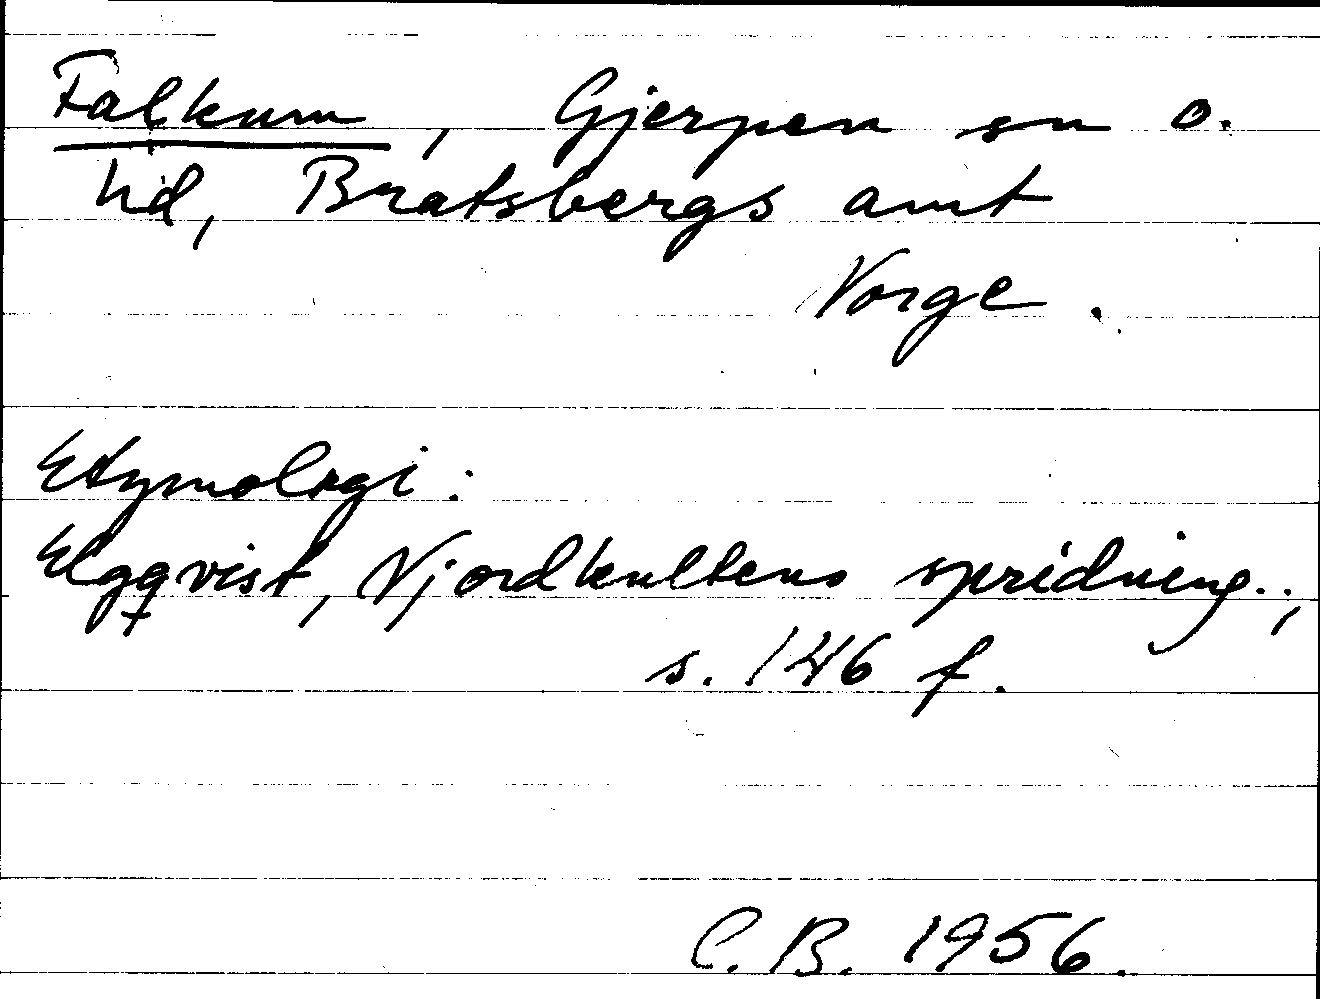 Falkum, Gjerpen sn o.
hd, Bratsbergs amt
Norge.
Etymologi:
Elgqvist, Njordkultens spridning..,
s. 146 f.
C.B. 1956.